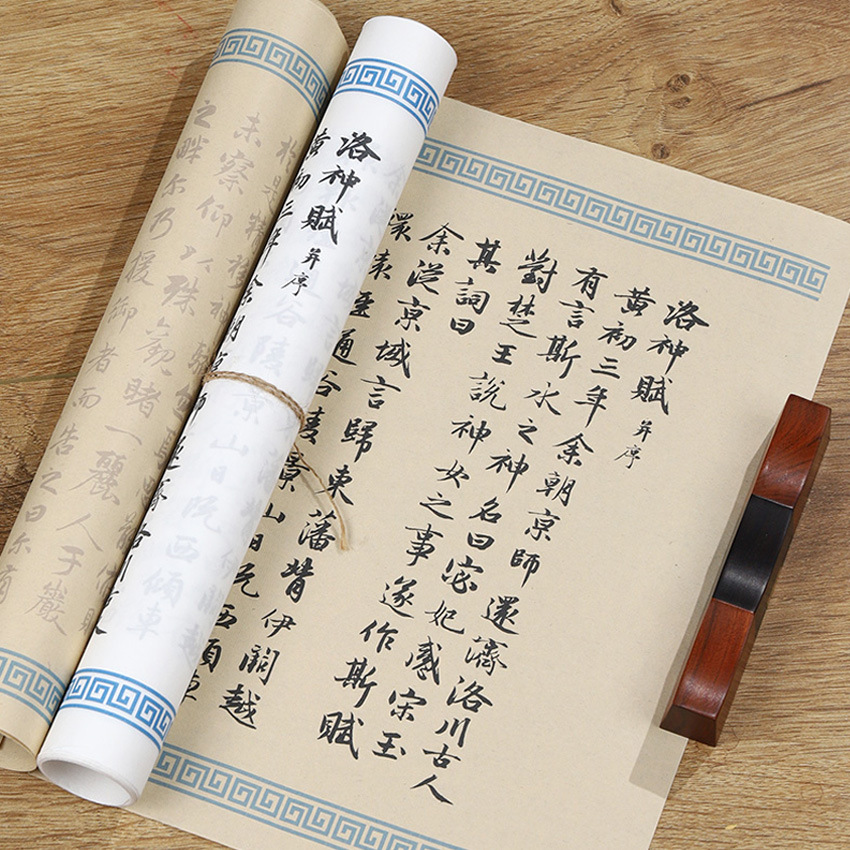 洛神賦 并序
黃初三年余朝京師還濟洛川古人
有言斯水之神名曰宓妃感宋玉
對楚王說神女之事遂作斯賦
其詞曰
余從京域言歸東藩背伊闕越
轘轅經通谷陵景山日既西傾車
洛神賦 并序
黃初三年余朝京師還濟洛川
景山日既西傾車
於是精移神駭
未察仰以殊觀睹一麗人于巖
之畔尔乃援御者而告之曰尔有